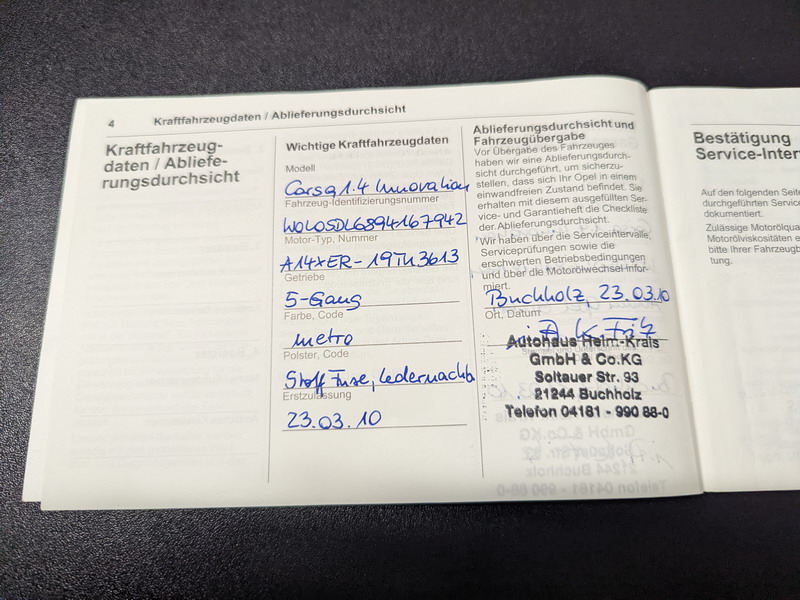 4 Kraftfahrzeugdaten / Ablieferungsdurchsicht
Kraftfahrzeug-
daten / Abliefe-
rungsdurchsicht
Wichtige Kraftfahrzeugdaten
Modell
Corsa 1.4 Innovation
Fahrzeug-Identifizierungsnummer
W0L0SDL6894167942
Motor-Typ, Nummer
A14XER-19TH3613
Getriebe
5-Gang
Farbe, Code
metro
Polster, Code
Stoff Fuse, Ledernachb
Erstzulassung
23.03.10
Ablieferungsdurchsicht und
Fahrzeugübergabe
Vor Übergabe des Fahrzeuges
haben wir eine Ablieferungsdurch-
sicht durchgeführt, um sicherzu-
stellen, dass sich Ihr Opel in einem
einwandfreien Zustand befindet. Sie
erhalten mit diesem ausgefüllten Ser-
vice- und Garantieheft die Checkliste
der Ablieferungsdurchsicht.
Wir haben über die Serviceintervalle,
Serviceprüfungen sowie die
erschwerten Betriebsbedingungen
und über die Motorölwechsel-Infor-
miert.
Buchholz, 23.03.10
Ort, Datum
Autohaus Helm-Krais
GmbH & Co.KG
Soltauer Str. 93
21244 Buchholz
Telefon 04181 - 990 88-0
Bestätigung
Service-Inter
Auf den folgenden Seite
durchgeführten Service
dokumentiert.
Zulässige Motorölqua
Motorölviskositäten e
bitte Ihrer Fahrzeugb
tung.